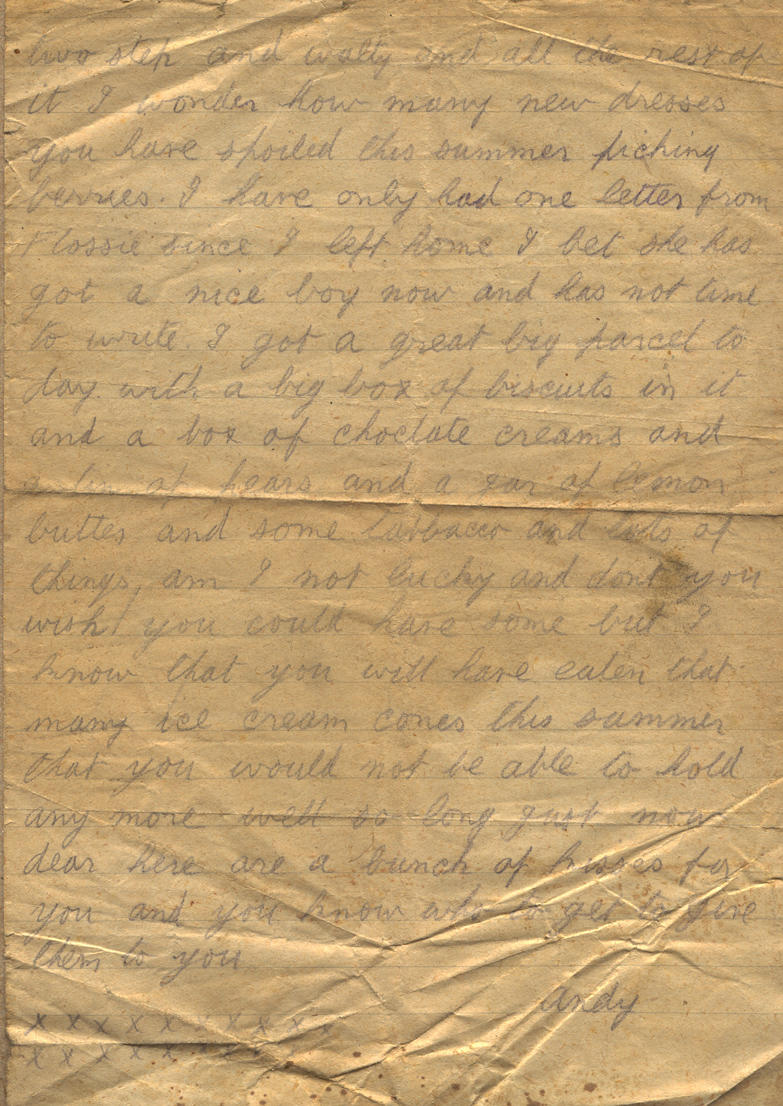 two step and waltz and all the rest of
it I wonder how many new dresses
you have spoiled this summer piching
berries. I have only had one letter from
Flossie since I left home I bet she has
got a nice boy now and has not time
to write. I got a great big parcel to
day with a big box of biscuits in it
and a box of choclate creams and
a tin of pears and a gar of lemon
buttes and some tabbacco and lots of
things, am I not lucky and dont you
wish you could have some but I
know that you will have eaten that
many ice cream cones this summer
that you would not be able to hold
any more well so long just now
dear here are a bunch of kisses for
you and you know who to get to give
them to you
Andy
x x x x x x x x x x
x x x x x x x x